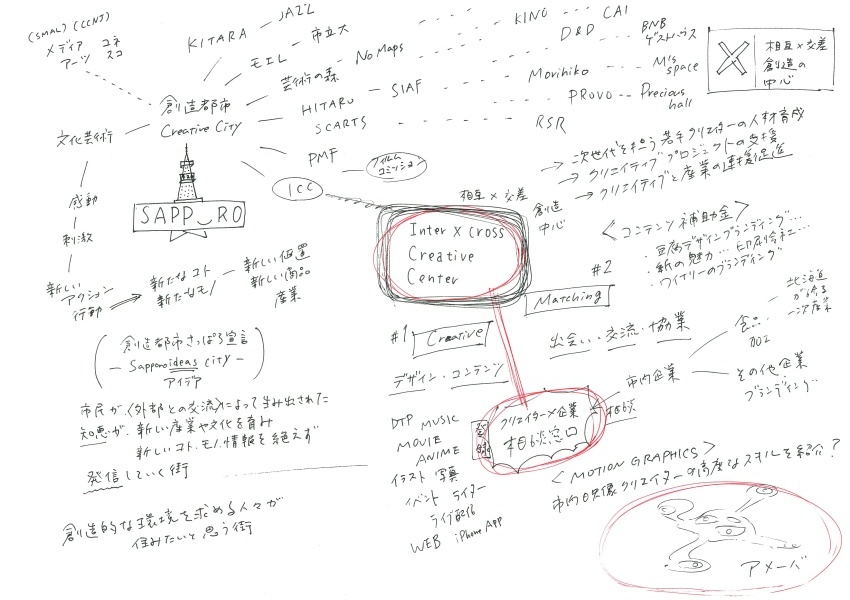 (SMAL) (CCNJ)
メディア ユネ
アーツ スコ
KITARA
JAZZ
モエレ
市立大
芸術の森
No Maps
KINO
CAI
D&D
BNB
ゲストハウス
相互×交差
創造の
中心
創造都市
Creative City
HITARU
SIAF
Morihiko
M's
space
SCARTS
PROVO
Precious
hall
RSR
文化芸術
PMF
フィルム
コミッション
ICC
SAPP_RO
→ 次世代を担う若手クリエイターの人材育成
→ クリエイティブプロジェクトの支援
→ クリエイティブと産業の連携促進
相互×交差
創造
中心
Inter × Cross
Creative
Center
感動
刺激
新しい
アクション
行動
新たなコト
新たなモノ
新しい価値
新しい商品
産業
<コンテンツ補助金>
・豆腐デザインブランディング...
・紙の魅力...印刷会社...
・ワイナリーのブランディング
#2
Matching
出会い・交流・協業
#1
Creative
デザイン・コンテンツ
創造都市さっぽろ宣言
- Sapporo ideas city -
アイデア
市民が〈外部との交流〉によって生み出された
知恵が、新しい産業や文化を育み
新しいコト、モノ、情報を絶えず
発信していく街
創造的な環境を求める人々が
住みたいと思う街
DTP MUSIC
MOVIE
ANIME
イラスト 写真
イベント ライター
ライブ配信
WEB iPhone App
クリエイター×企業
相談窓口
相談
市内企業
食品
加工
北海道
が誇る
一次産業
その他企業
ブランディング
<MOTION GRAPHICS>
市内映像クリエイターの高度なスキルを紹介?
アメーバ